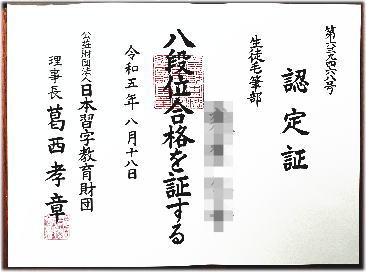 認定証
生徒毛筆部
八段位合格を証する
令和五年八月十八日
公益財団法人日本習字教育財団
理事長 葛西孝章